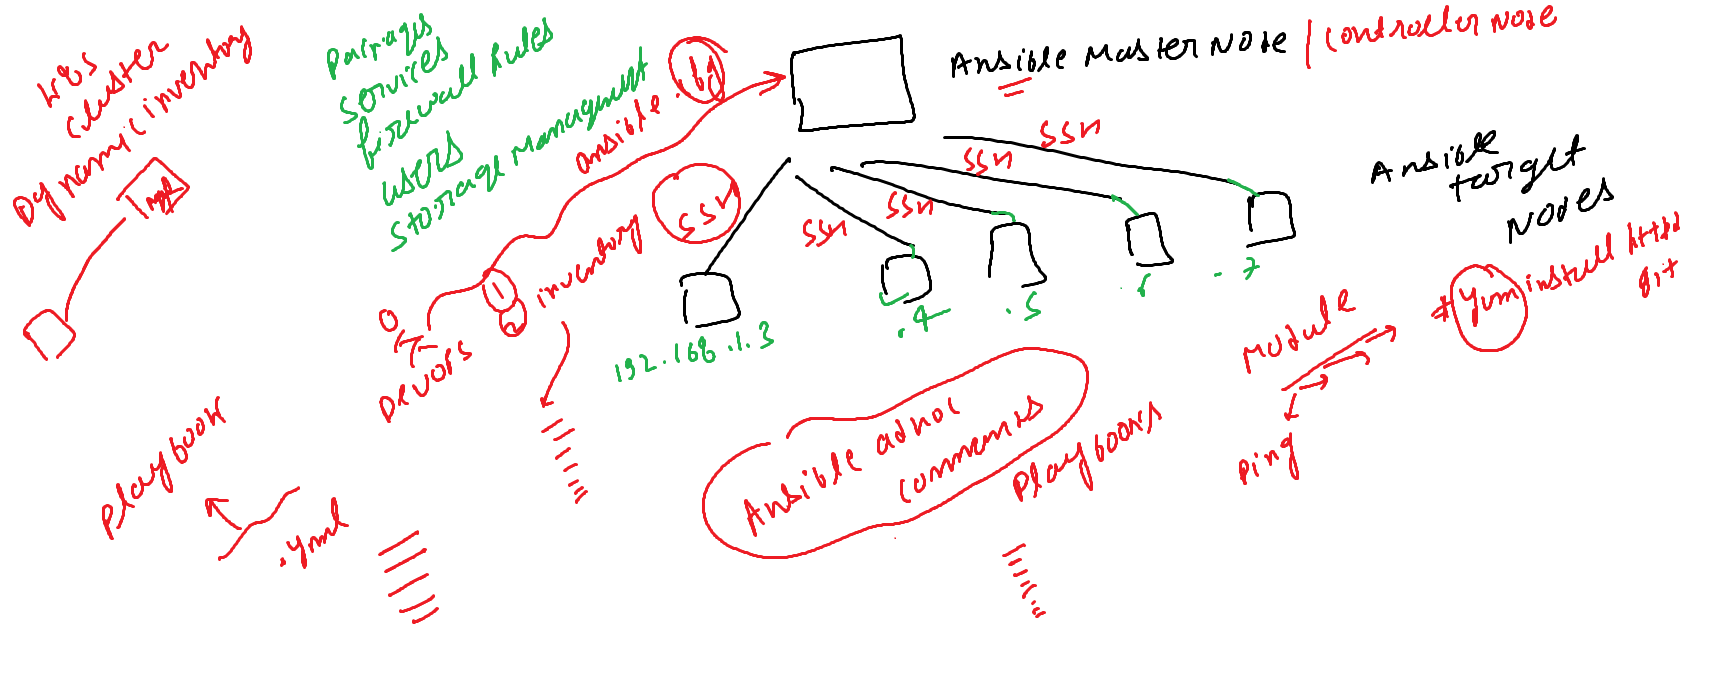 K8s
cluster
Dynamic inventory
Packages
services
firewall Rules
users
storage Management
ansible.cfg
Ansible Master Node / Controller Node
SSH
SSH
SSH
SSH
SSH
Ansible
target
Nodes
1
2 inventory
DEVOPS
192.168.1.3
.4
.5
.6
.7
Module
# Yum install httpd
git
Ping
Ansible adhoc
commands
Playbooks
Playbook
.yml